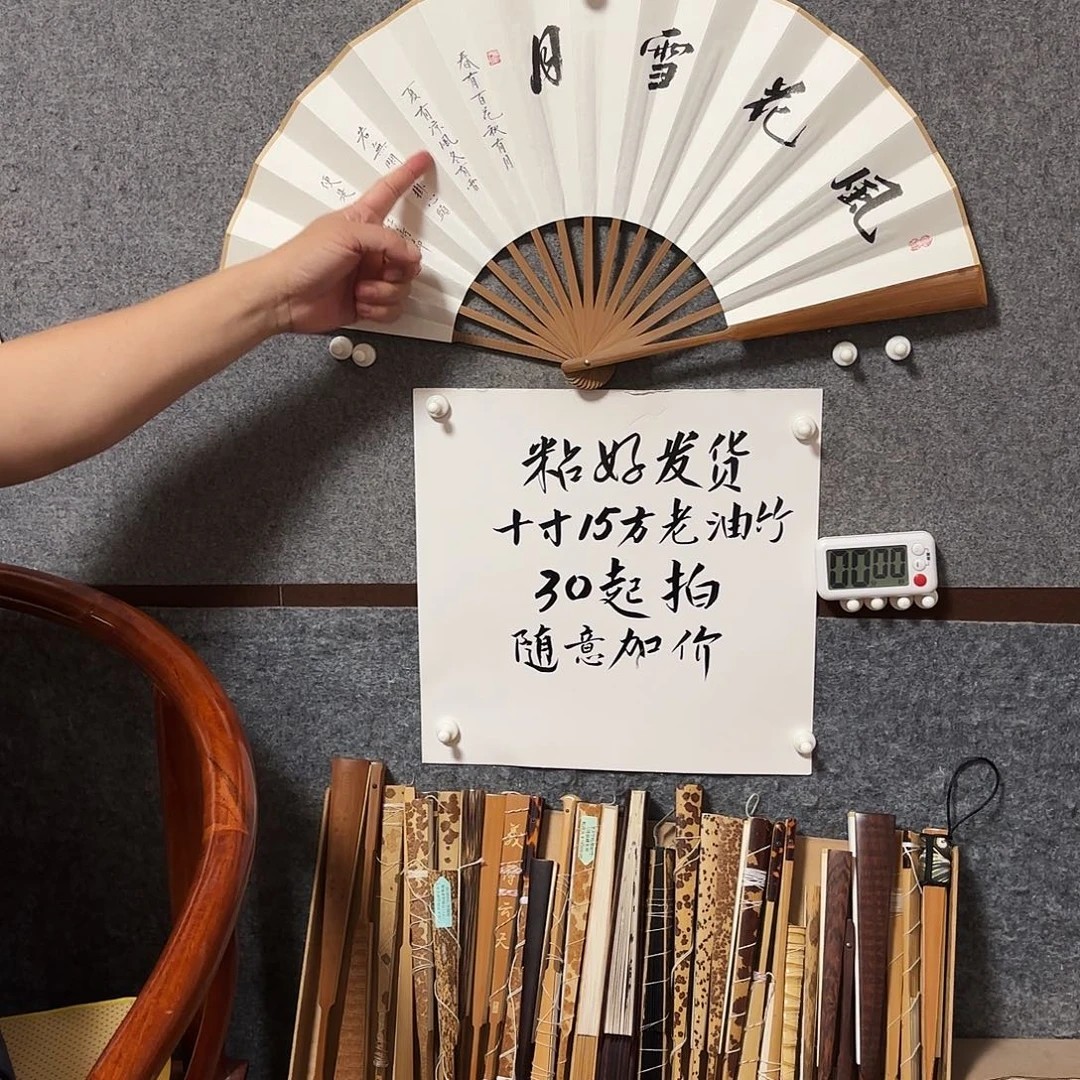 風花雪月
春有百花秋有月
夏有凉風冬有雪
若無 心頭
便是
粘好发货
十寸15方老油竹
30起拍
随意加价
00:00